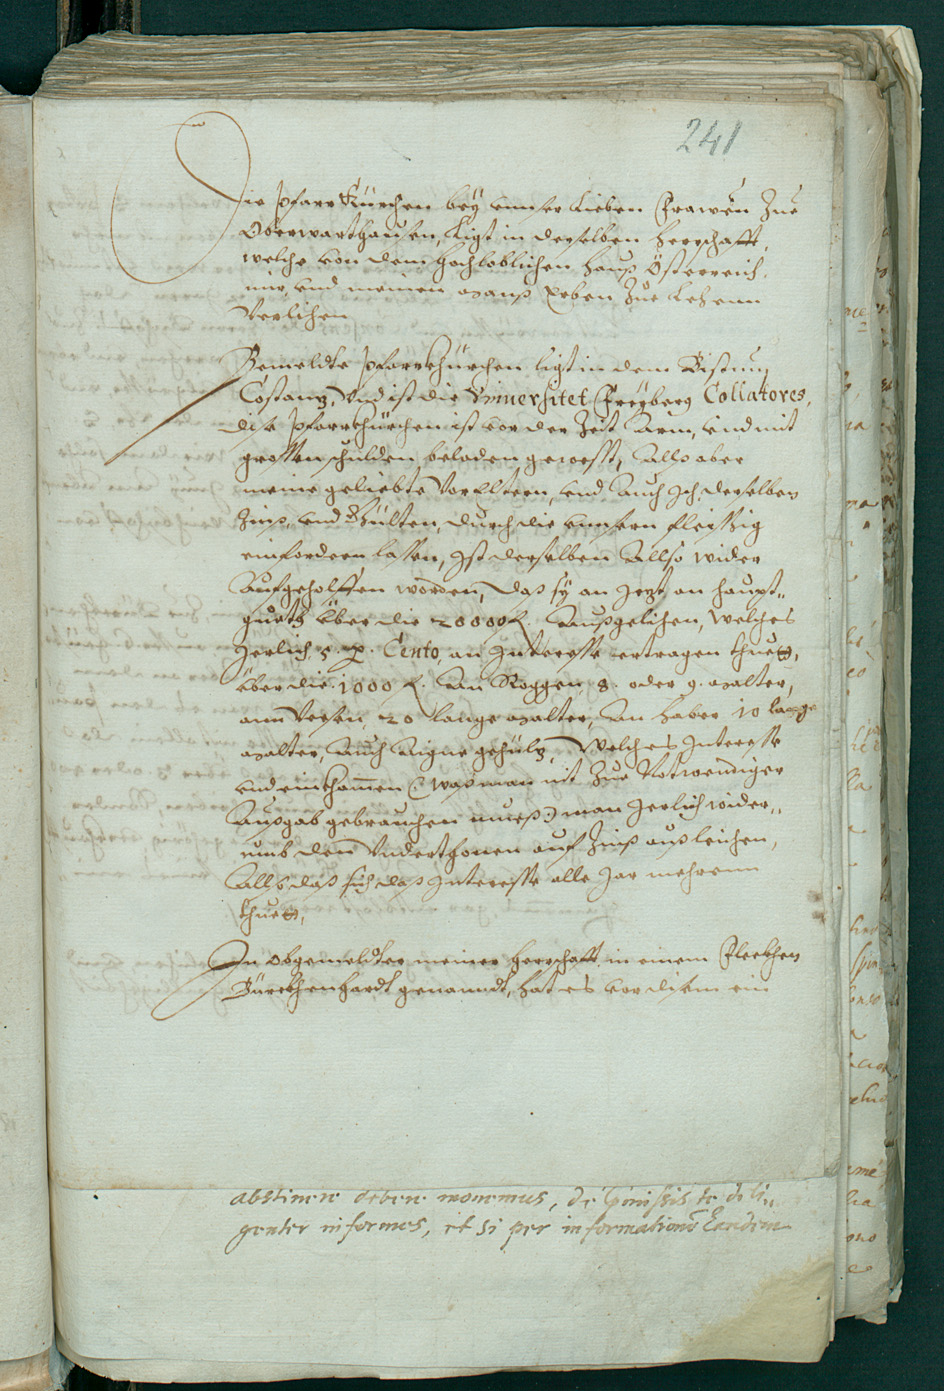 241
Die Pfarr Kürchen bey unser Lieben Frawen Zue
Oberwarthausen, Ligt in derselben herrschafft,
welche von dem hochloblichen hauß Österreich,
mir, und meinen manß Erben Zue Lehenn
Verlihen
Gemeldte Pfarrkhürchen ligt in dem Bistumb
Costanz, Und ist die Universitet Freyberg Collatores,
dise Pfarrkhürchen ist vor der Zeit Arm, und mit
grossen schulden beladen gewesst, Allß aber
meine geliebte Vorelteren, und Auch Ich, derselben
Zinß, und Gülten, durch die unsern fleissig
einfordern lassen, Ist derselben Allso wider
Aufgeholffen worden, daß sy an Jezt an haupt„
guetts über die 20000 fl. Außgelihen, Welches
Jerlich, 5 p. Cento, an Interesse ertragen thuett,
über die 1000 fl. An Roggen, 8. oder 9. malter,
ann Vesen, 20 lange malter, An haber 10 lange
malter, Auch Aigne gehülz, Welches Interesse
und einkhommen (: waß man nit Zue Notwendiger
Außgab gebrauchen mueß:) man Jerlich wider„
umb den Underthonen auf Zinß außleichen,
Allß daß sich daß Interesse alle Jar mehrenn
thuett,
In obgemeldter meiner herrschafft in einem Fleckhen
Bürckhenhardt genanndt, hat es vor disem ein
abstinere debere monemus, de te dili„
genter informes, et si per informationem Eandem